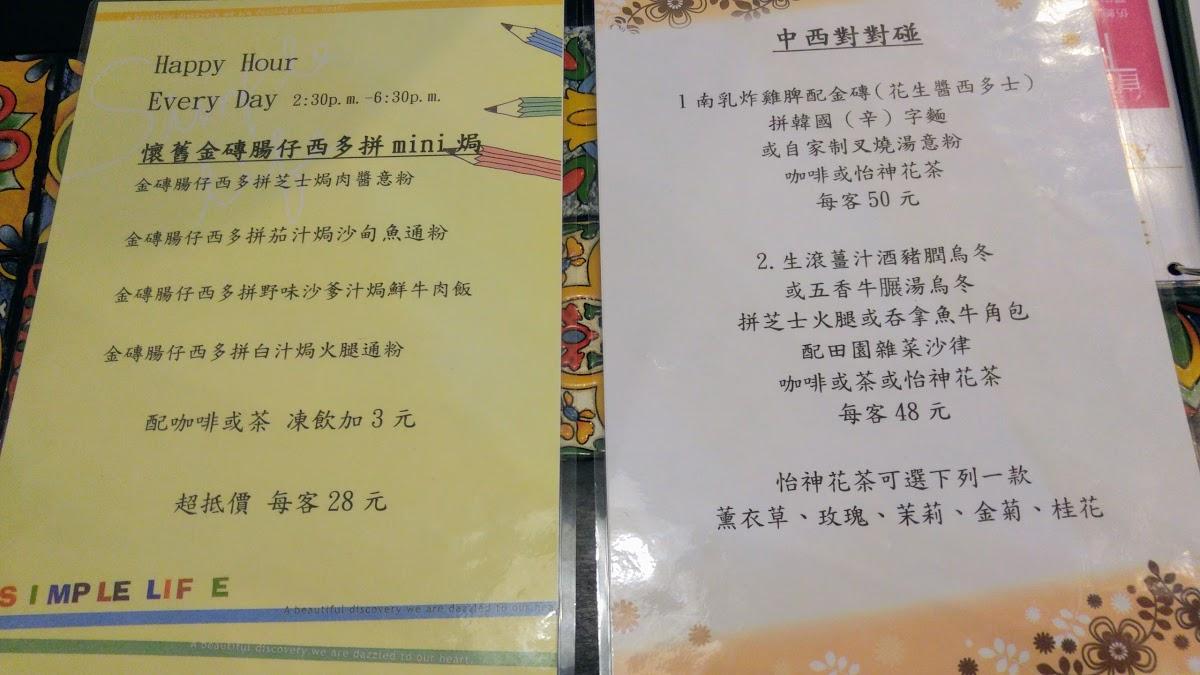 A beautiful discovery we are dazzled to our heart.
Happy Hour
Every Day 2:30p.m.-6:30p.m.
懷舊金磚腸仔西多拼mini焗
金磚腸仔西多拼芝士焗肉醬意粉
金磚腸仔西多拼茄汁焗沙甸魚通粉
金磚腸仔西多拼野味沙爹汁焗鮮牛肉飯
金磚腸仔西多拼白汁焗火腿通粉
配咖啡或茶 凍飲加3元
超抵價 每客28元
SIMPLE LIFE
A beautiful discovery we are dazzled to our hea
A beautiful discovery we are dazzled to our heart.
中西對對碰
1南乳炸雞脾配金磚(花生醬西多士)
拼韓國(辛)字麵
或自家制叉燒湯意粉
咖啡或怡神花茶
每客50元
2.生滾薑汁酒豬膶烏冬
或五香牛𦟌湯烏冬
拼芝士火腿或吞拿魚牛角包
配田園雜菜沙律
咖啡或茶或怡神花茶
每客48元
怡神花茶可選下列一款
薰衣草、玫瑰、茉莉、金菊、桂花